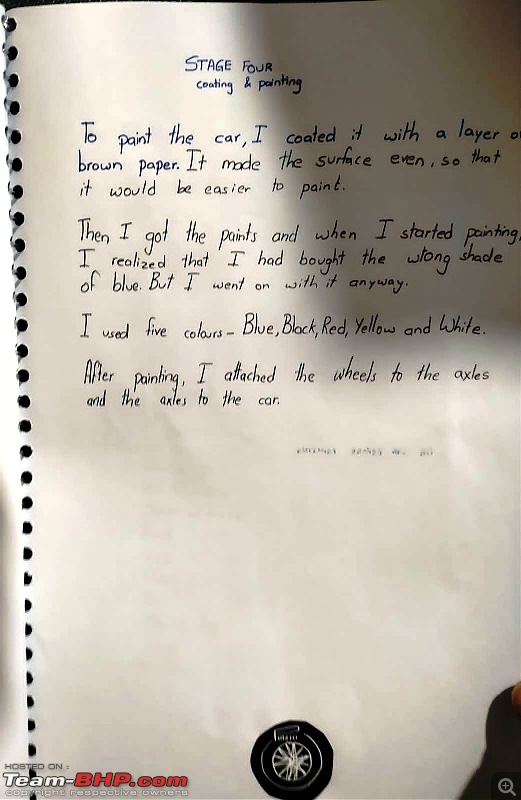 STAGE FOUR
coating & painting
To paint the car, I coated it with a layer o
brown paper. It made the surface even, so that
it would be easier to paint.
Then I got the paints and when I started painting,
I realized that I had bought the wrong shade
of blue. But I went on with it anyway.
I used five colours – Blue, Black, Red, Yellow and White.
After painting, I attached the wheels to the axles
and the axles to the car.
HOSTED ON :
Team-BHP.com
copyright respective owners